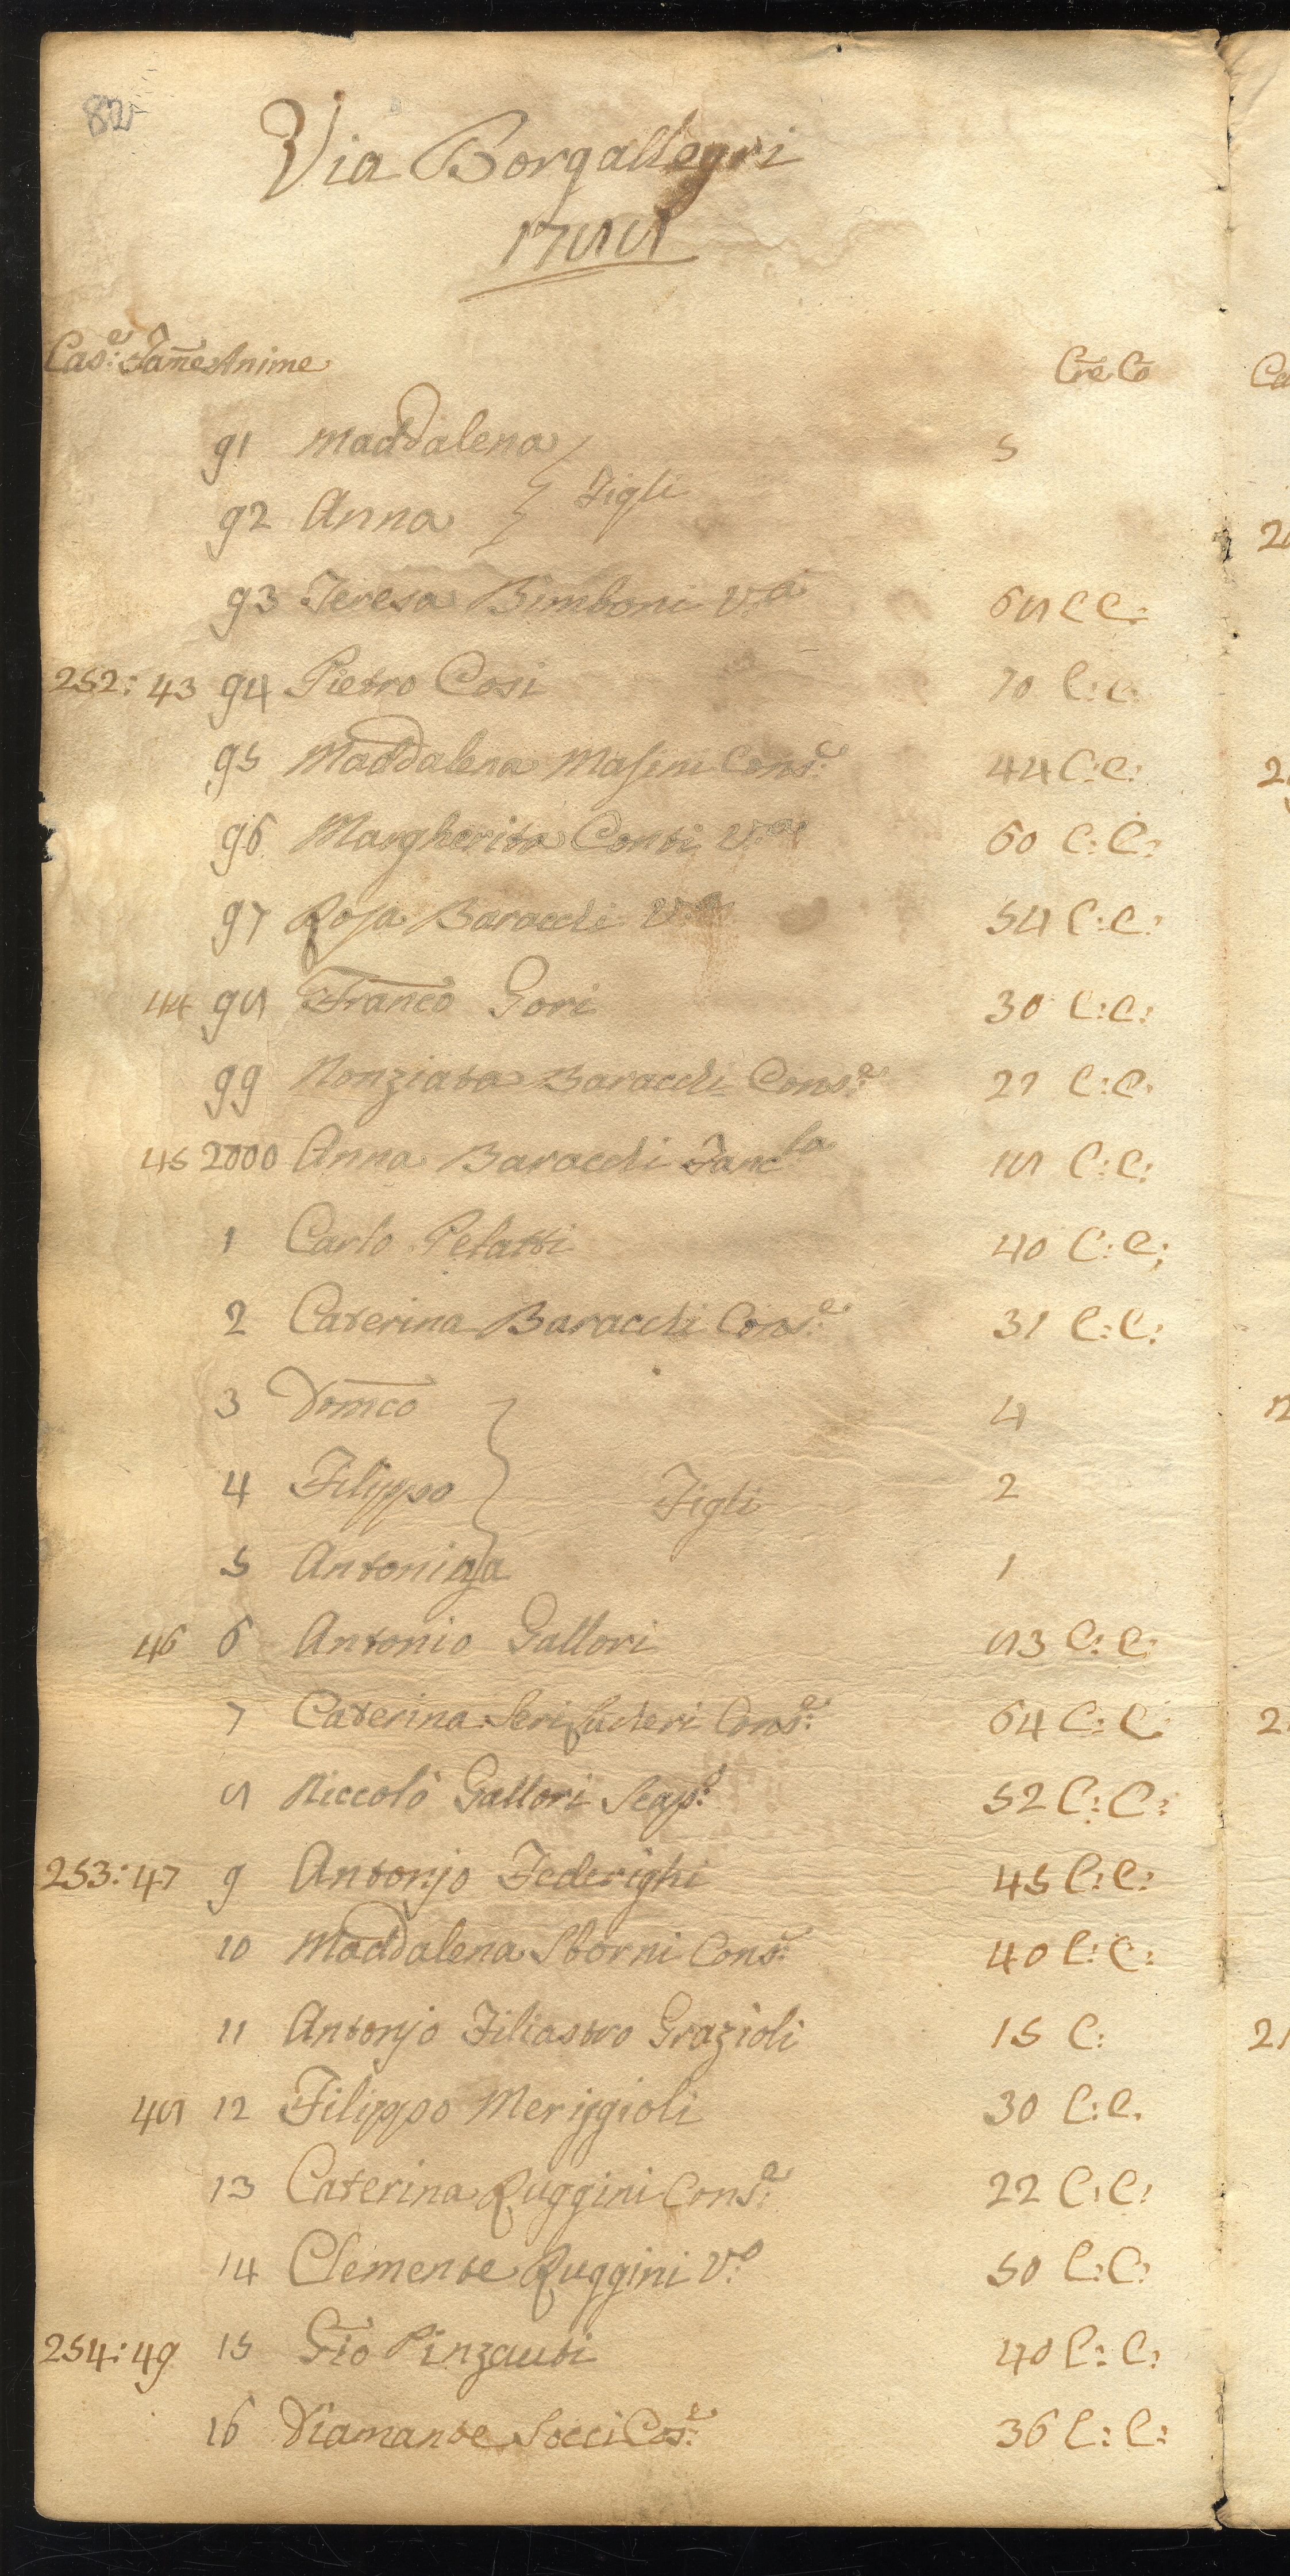 82
Via Borgallegri
1788
Cas:e Fam̃e Anime Cr̃e Cõ
91 Maddalena 5
92 Anna } Figli
93 Teresa Bimboni V:a 68 C C:
252: 43 94 Pietro Cosi 70 C: C:
95 Maddalena Masini Cons:e 44 C: C:
96 Margherita Conti V:a 60 C: C:
97 Rosa Baracchi V:a 54 C: C:
44 98 Franc̃o Gori 30 C: C:
99 Nonziata Baracchi Cons:e 27 C: C:
45 2000 Anna Baracchi Fanc:la 18 C: C:
1 Carlo Pelatti 40 C: C:
2 Caterina Baracchi Cons:e 31 C: C:
3 Dom̃co 4
4 Filippo } Figli 2
5 Antonina 1
46 6 Antonio Gallori 83 C: C:
7 Caterina Serisuderi Cons:e 64 C: C:
8 Niccolò Gallori Scap:o 52 C: C:
253: 47 9 Antonjo Federighi 45 C: C:
10 Maddalena Storni Cons:e 40 C: C:
11 Antonjo Filiastro Grazioli 15 C:
48 12 Filippo Meriggioli 30 C: C.
13 Caterina Ruggini Cons:e 22 C: C:
14 Clemente Ruggini V:o 50 C: C:
254: 49 15 Gio Pinzauti 40 C: C:
16 Diamante Socci Cos:e 36 C: C: